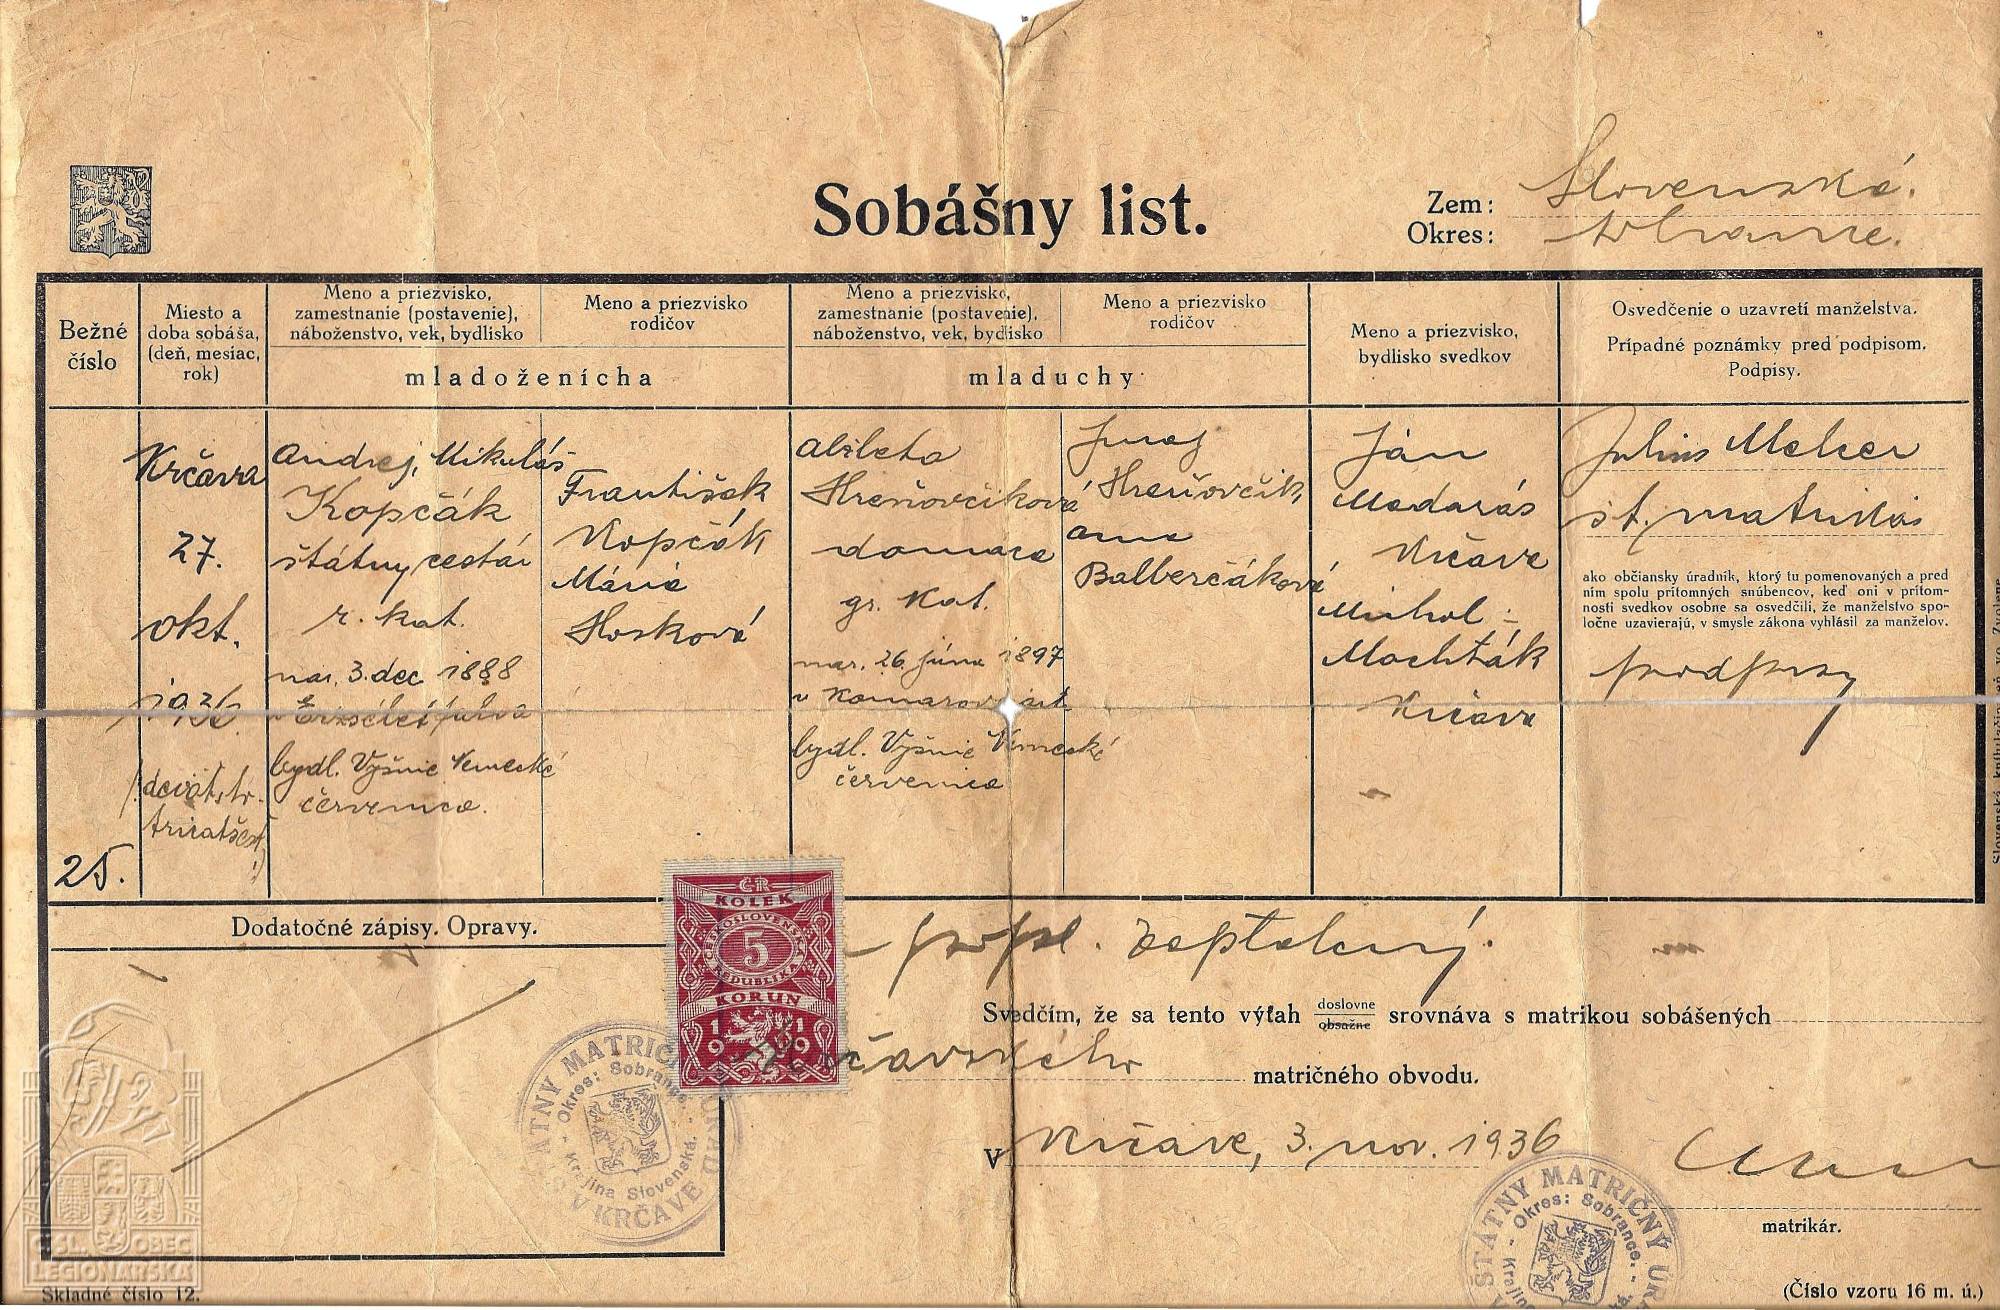 Sobášny list.
Zem: Slovenská.
Okres: Sobrance.
Bežné
číslo
Miesto a
doba sobáša,
(deň, mesiac,
rok)
Meno a priezvisko,
zamestnanie (postavenie),
náboženstvo, vek, bydlisko
Meno a priezvisko
rodičov
mladoženícha
Meno a priezvisko,
zamestnanie (postavenie),
náboženstvo, vek, bydlisko
Meno a priezvisko
rodičov
mladuchy
Meno a priezvisko,
bydlisko svedkov
Osvedčenie o uzavretí manželstva.
Prípadné poznámky pred podpisom.
Podpisy.
25.
Krčava
27.
okt.
1936.
Andrej, Mikuláš
Kopčák
štátny cestár
r. kat.
nar. 3. dec 1888
v Erzsébetfalva
bydl. Vyšnie Nemecké
červenica.
František
Kopčák
Mária
Hosková
Alžbeta
Hreňovčíková
domáca
gr. kat.
nar. 26. júna 1897
v
bydl. Vyšnie Nemecké
červenica
Juraj
Hreňovčík,
Anna
Balberčáková
Ján
Madarás
Krčava
Michal
Mochňák
Krčava
Julius Melcer
št. matrikár
ako občiansky úradník, ktorý tu pomenovaných a pred
ním spolu prítomných snúbencov, keď oni v prítom-
nosti svedkov osobne sa osvedčili, že manželstvo spo-
ločne uzavierajú, v smysle zákona vyhlásil za manželov.
podpisy
Dodatočné zápisy. Opravy.
popl. zaplatený.
ČR
KOLEK
ČESKOSLOVENSKÁ
5
REPUBLIKA
KORUN
1919
Svedčím, že sa tento výťah doslovne obsažne srovnáva s matrikou sobášených
Krčavského matričného obvodu.
V Krčave, 3. nov. 1936
matrikár.
ŠTÁTNY MATRIČNÝ ÚRAD
V KRČAVE
Okres: Sobrance.
Krajina Slovenská.
ŠTÁTNY MATRIČNÝ ÚRA
Okres: Sobrance.
Krajin
ČSL. OBEC
LEGIONÁŘSKÁ
Skladné číslo 12.
(Číslo vzoru 16 m. ú.)